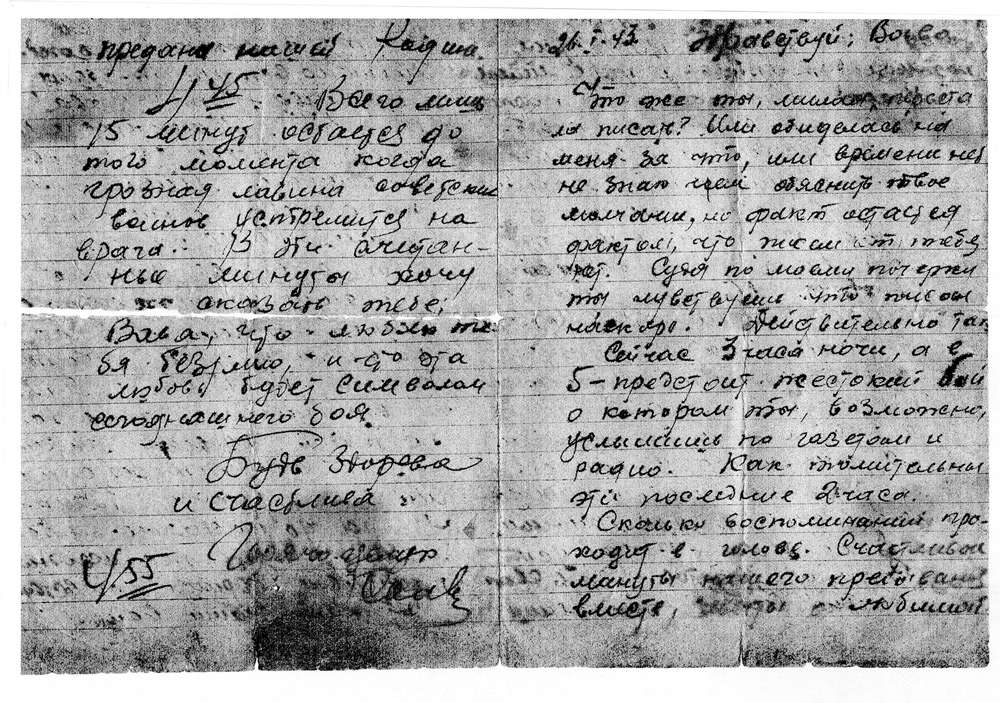 26.I.43 Здравствуй, Вова
Что же ты, милая, переста
ла писать? Или обиделась на
меня за что, или времени нет
не знаю чем обяснить твое
молчание, но факт остается
фактом, что писем от тебя
нет. Судя по моему почерку
ты чувствуешь что пишу
наскоро. Действительно так
Сейчас 3 часа ночи, а в
5 – предстоит жестокий бой
о котором ты, возможно,
услышишь по газетам и
радио. Как томительны
эти последние 2 часа.
Сколько воспоминаний про-
ходит в голове. Счастливые
минуты нашего пребывания
вместе, любимой
предана нашей Родине
4 45. Всего лишь
15 минут остается до
того момента когда
грозная лавина советских
воинов устремится на
врага. В эти считан-
ные минуты хочу
сказать тебе,
Вова, что люблю те-
бя безумно, и что эта
любовь будет символом
сегодняшнего боя
Будь здорова
и счастлива
Горячо целую
4 55